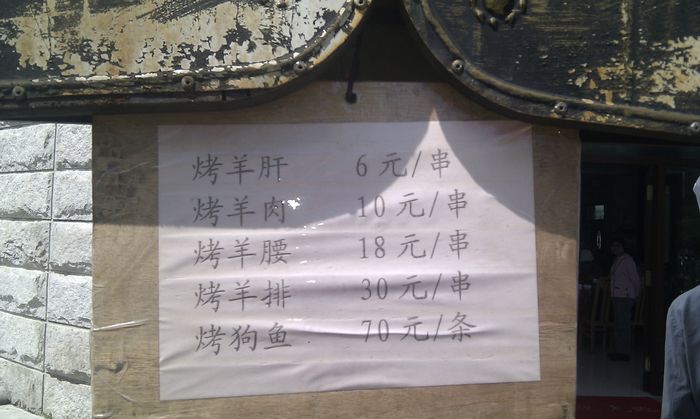 烤羊肝 6元/串
烤羊肉 10元/串
烤羊腰 18元/串
烤羊排 30元/串
烤狗鱼 70元/条